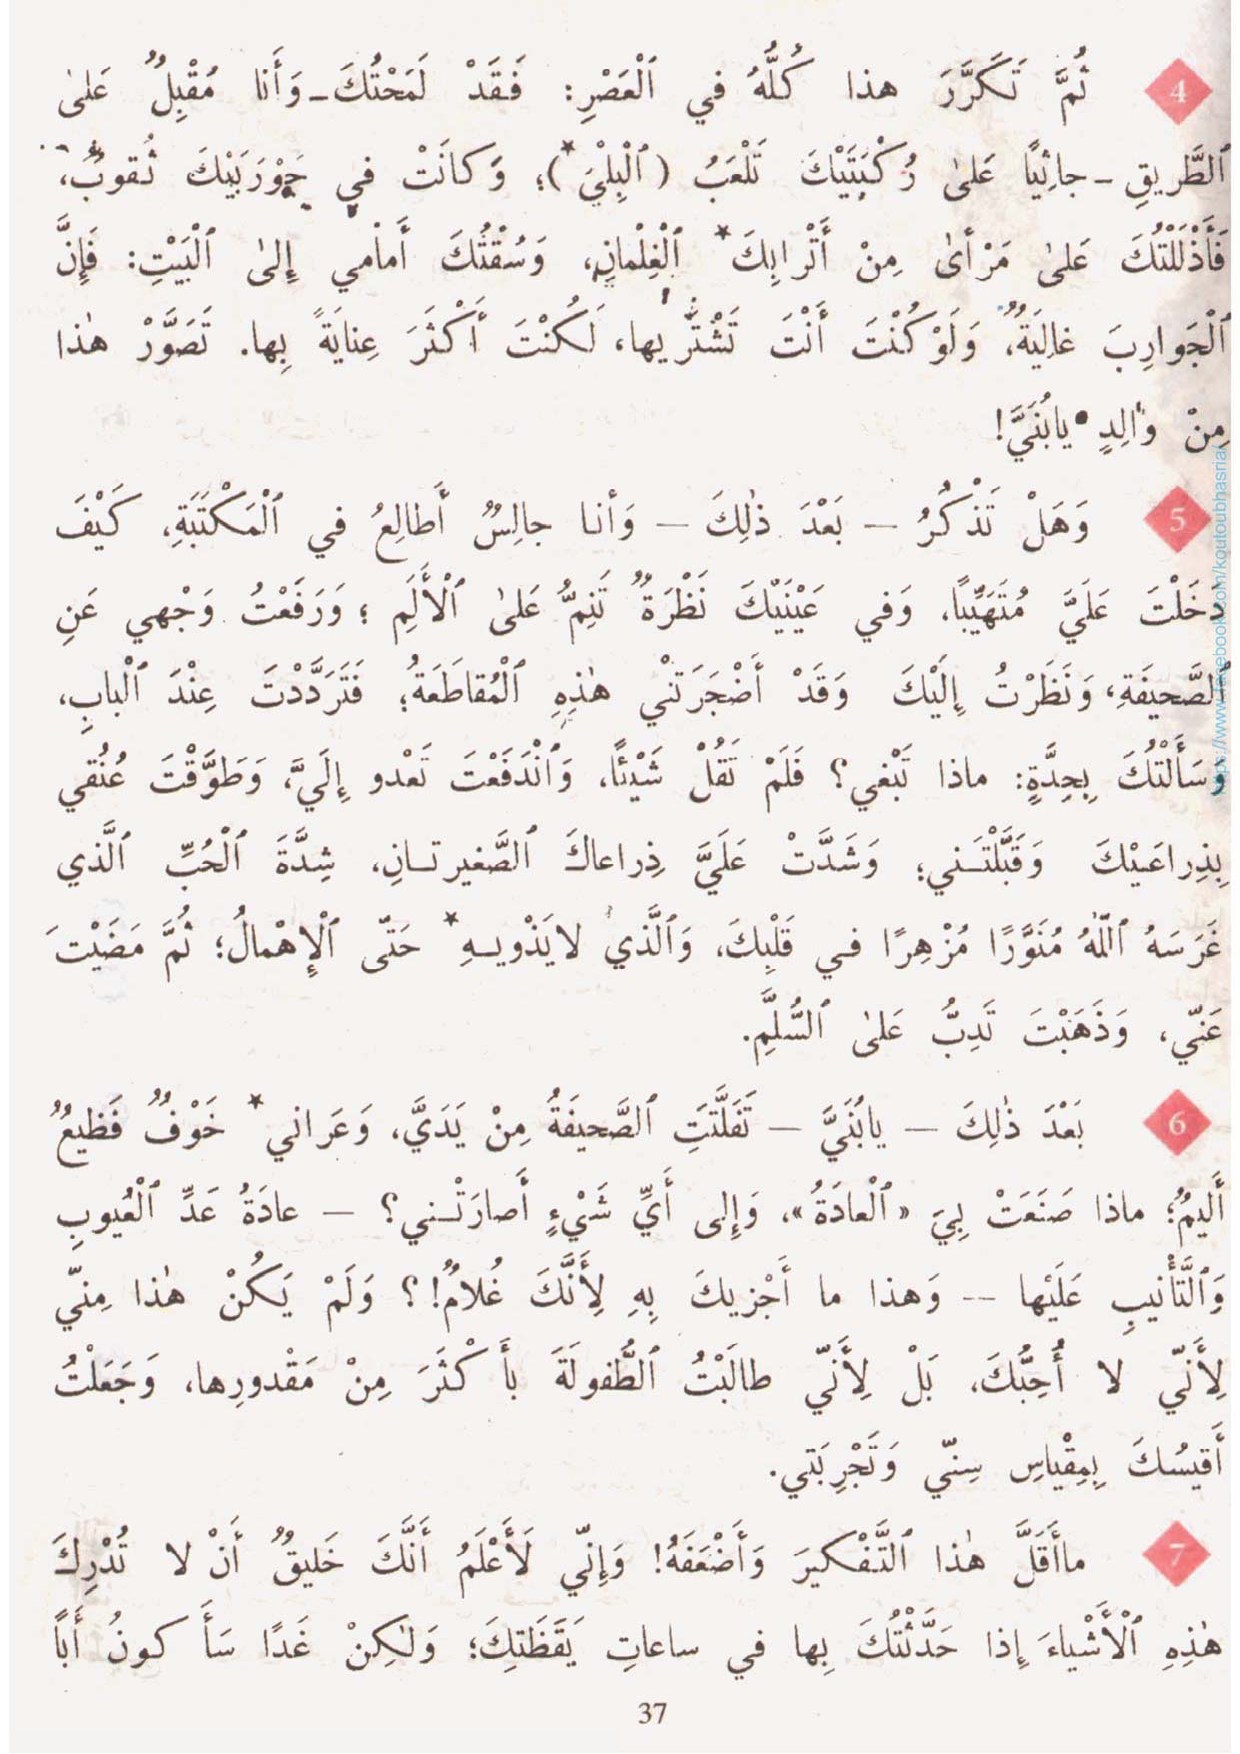 4 ثُمَّ تَكَرَّرَ هذا كُلُّهُ في ٱلْعَصْرِ: فَقَدْ لَمَحْتُكَ ـ وَأَنا مُقْبِلٌ عَلىٰ
ٱلطَّريقِ ـ جاثِيًا عَلىٰ رُكْبَتَيْكَ تَلْعَبُ (ٱلْبِلِيْ*)؛ وَكانَتْ في جَوْرَبَيْكَ ثُقوبٌ،
فَأَذْلَلْتُكَ عَلىٰ مَرْأىٰ مِنْ أَتْرابِكَ* ٱلْغِلْمانِ، وَسُقْتُكَ أَمامي إِلىٰ ٱلْبَيْتِ: فَإِنَّ
ٱلْجَوارِبَ غالِيَةٌ، وَلَوْ كُنْتَ أَنْتَ تَشْتَريها، لَكُنْتَ أَكْثَرَ عِنايَةً بِها. تَصَوَّرْ هٰذا
مِنْ والِدٍ يابُنَيَّ!
5 وَهَلْ تَذْكُرُ — بَعْدَ ذٰلِكَ — وَأنا جالِسٌ أَطالِعُ في ٱلْمَكْتَبَةِ، كَيْفَ
دخَلْتَ عَلَيَّ مُتَهَيِّباً، وَفي عَيْنَيْكَ نَظْرَةٌ تَنِمُّ عَلىٰ ٱلْأَلَمِ ؛ وَرَفَعْتُ وَجْهي عَنِ
ٱلصَّحيفَةِ، وَنَظَرْتُ إِلَيْكَ وَقَدْ أَضْجَرَتْني هٰذِهِ ٱلْمُقاطَعَةُ؛ فَتَرَدَّدْتَ عِنْدَ ٱلْبابِ،
وَسَأَلْتُكَ بِحِدَّةٍ: ماذا تَبْغي؟ فَلَمْ تَقُلْ شَيْئًا، وَٱنْدَفَعْتَ تَعْدو إِلَيَّ، وَطَوَّقْتَ عُنُقي
بِذِراعَيْكَ وَقَبَّلْتَـني؛ وَشَدَّتْ عَلَيَّ ذِراعاكَ ٱلصَّغيرتـانِ، شِدَّةَ ٱلْحُبِّ ٱلَّذي
غَرَسَهُ ٱللّٰهُ مُنَوَّرًا مُزْهِرًا فـي قَلْبِكَ، وَٱلَّذي لايَذْويـهِ* حَتّى ٱلْإِهْمالُ؛ ثُمَّ مَضَيْتَ
عَنّي، وَذَهَبْتَ تَدِبُّ عَلىٰ ٱلسُّلَّمِ.
6 بَعْدَ ذٰلِكَ — يابُنَيَّ — تَفَلَّتَتِ ٱلصَّحيفَةُ مِنْ يَدَيَّ، وَعَراني* خَوْفٌ فَظيعٌ
أَليمٌ؛ ماذا صَنَعَتْ بِيَ «ٱلْعادَةُ»، وَإِلى أَيِّ شَيْءٍ أَصارَتْـني؟ — عادَةُ عَدِّ ٱلْعُيوبِ
وَٱلتَّأْنيبِ عَلَيْها -- وَهذا ما أَجْزيكَ بِهِ لِأَنَّكَ غُلامٌ!؟ وَلَمْ يَكُنْ هٰذا مِنّي
لِأَنّي لا أُحِبُّكَ، بَلْ لِأَنّي طالَبْتُ ٱلطُّفولَةَ بأَكْثَرَ مِنْ مَقْدورِها، وَجَعَلْتُ
أَقيسُكَ بِمِقْياسِ سِنّي وَتَجْرِبَتي.
7 ماأَقَلَّ هٰذا ٱلتَّفْكيرَ وَأَضْعَفَهُ! وَإِنّي لَأَعْلَمُ أَنَّكَ خَليقٌ أَنْ لا تُدْرِكَ
هٰذِهِ ٱلْأَشْياءَ إِذا حَدَّثْتُكَ بِها في ساعاتِ يَقَظَتِكَ؛ وَلٰكِنْ غَدًا سَأَكونُ أَباً
37
https://www.facebook.com/koutoubhasria/